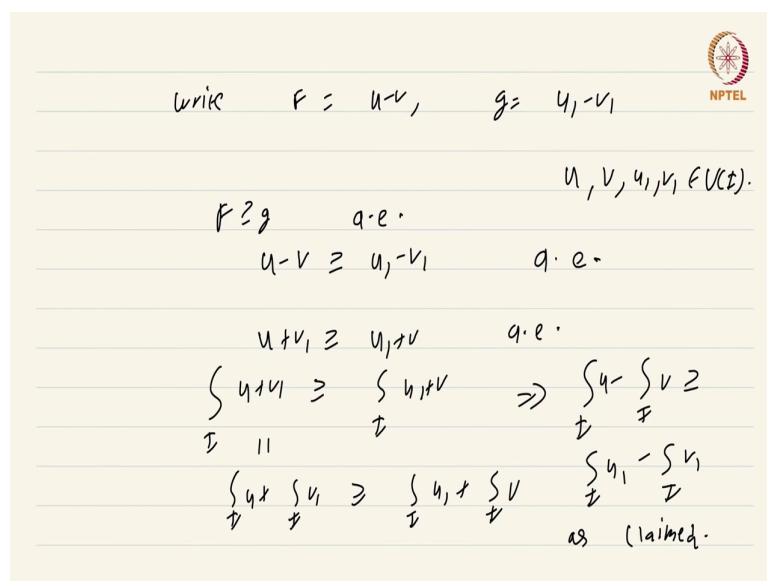 NPTEL
write F = u-v, g = u₁-v₁
u, v, u₁, v₁ ∈ U(I).
F ≥ g a.e.
u-v ≥ u₁-v₁ a.e.
u+v₁ ≥ u₁+v a.e.
∫_I u+v₁ ≥ ∫_I u₁+v ⇒ ∫_I u - ∫_I v ≥
|| ∫_I u₁ - ∫_I v₁
∫_I u + ∫_I v₁ ≥ ∫_I u₁ + ∫_I v
as claimed.